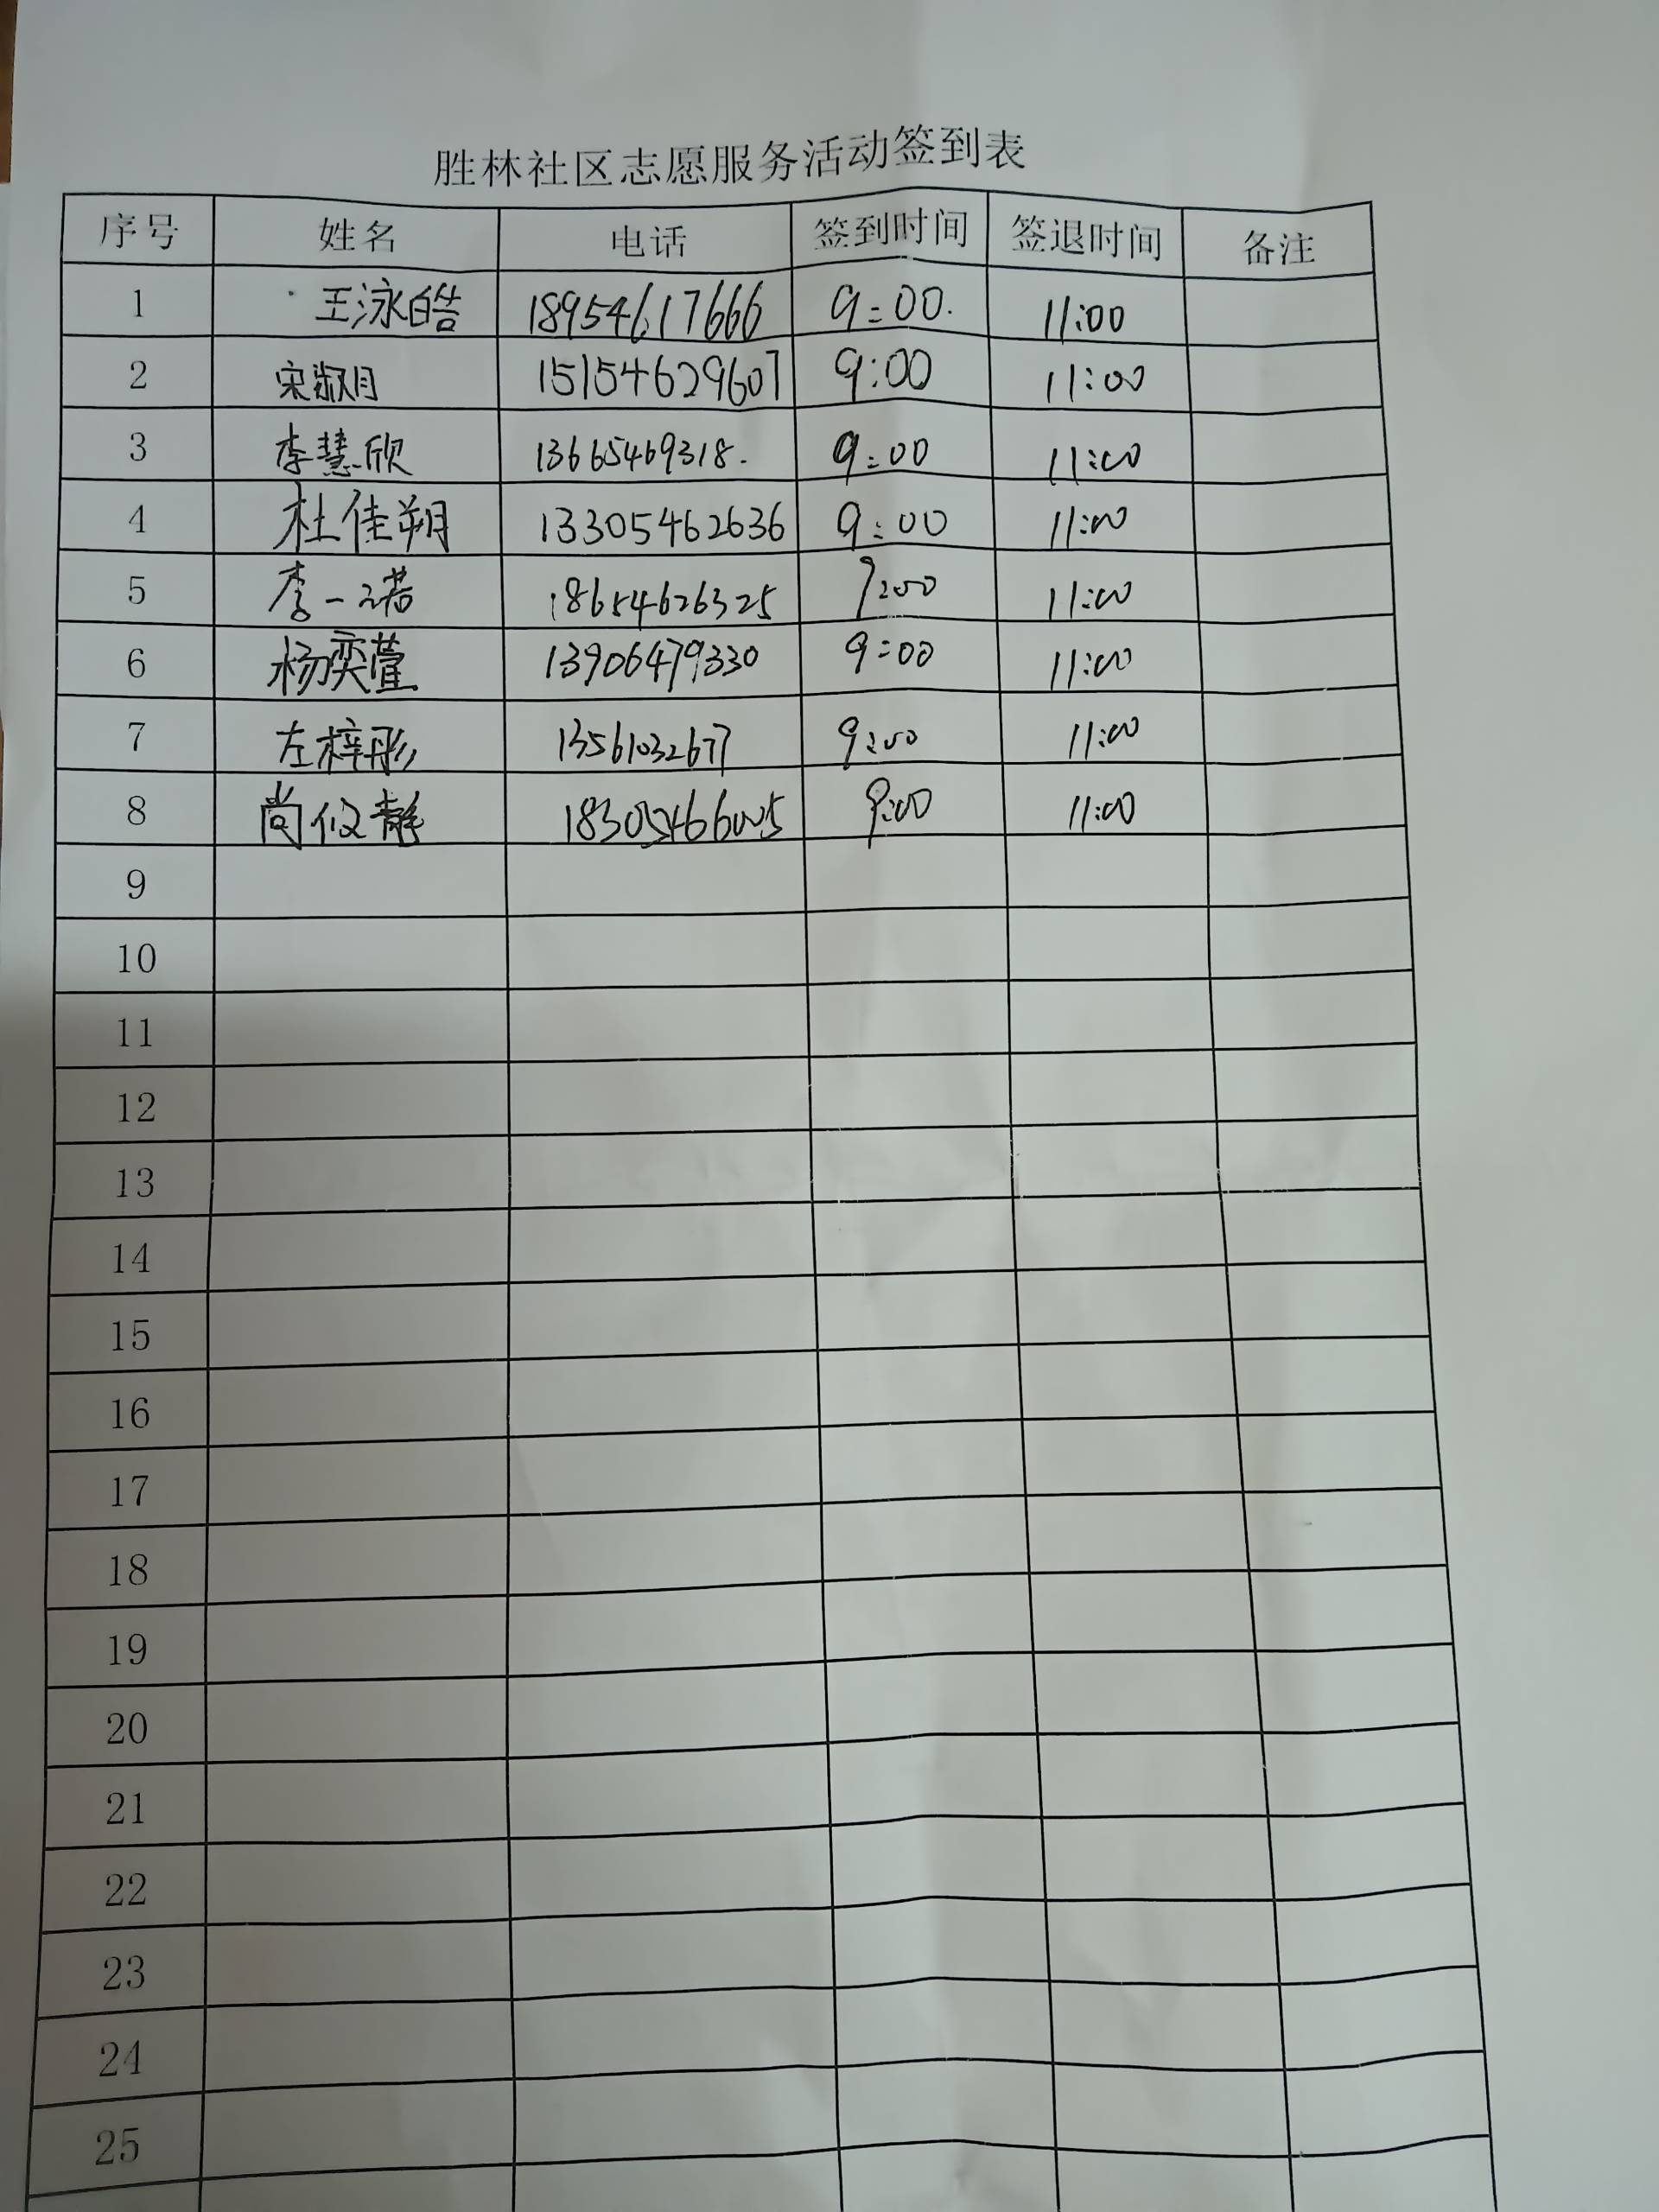 胜林社区志愿服务活动签到表
序号 姓名 电话 签到时间 签退时间 备注
1 王泳皓 18954617666 9:00. 11:00
2 宋淑月 15154629607 9:00 11:00
3 李慧欣 13665469318. 9:00 11:00
4 杜佳朔 13305462636 9:00 11:00
5 李一诺 18654626325 9:00 11:00
6 杨奕萱 13906479330 9:00 11:00
7 左梓彤 13561032677 9:00 11:00
8 尚 静 18305466005 9:00 11:00
9
10
11
12
13
14
15
16
17
18
19
20
21
22
23
24
25